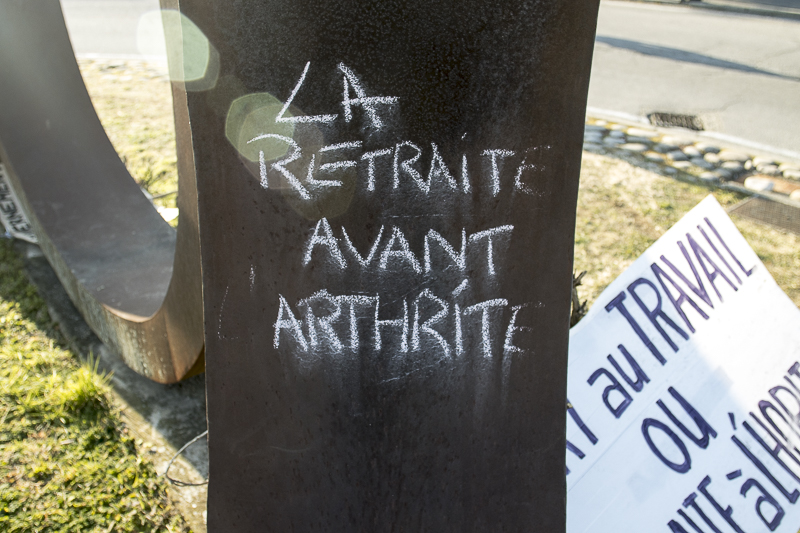 LA
RETRAITE
AVANT
ARTHRITE
au TRAVAIL
OU
à L'HOPIT